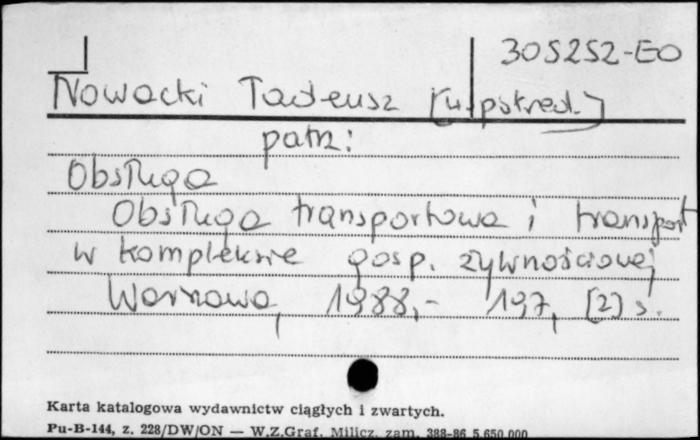 305252-EO
Nowacki Tadeusz [współred.]
patrz:
Obsługa
Obsługa transportowa i transport
w kompleksie gosp. żywnościowej
Warszawa, 1988,- 197, [2] s.
Karta katalogowa wydawnictw ciągłych i zwartych.
Pu-B-144, z. 228/DW/ON — W.Z.Graf. Milicz, zam. 388-86 5.650.000